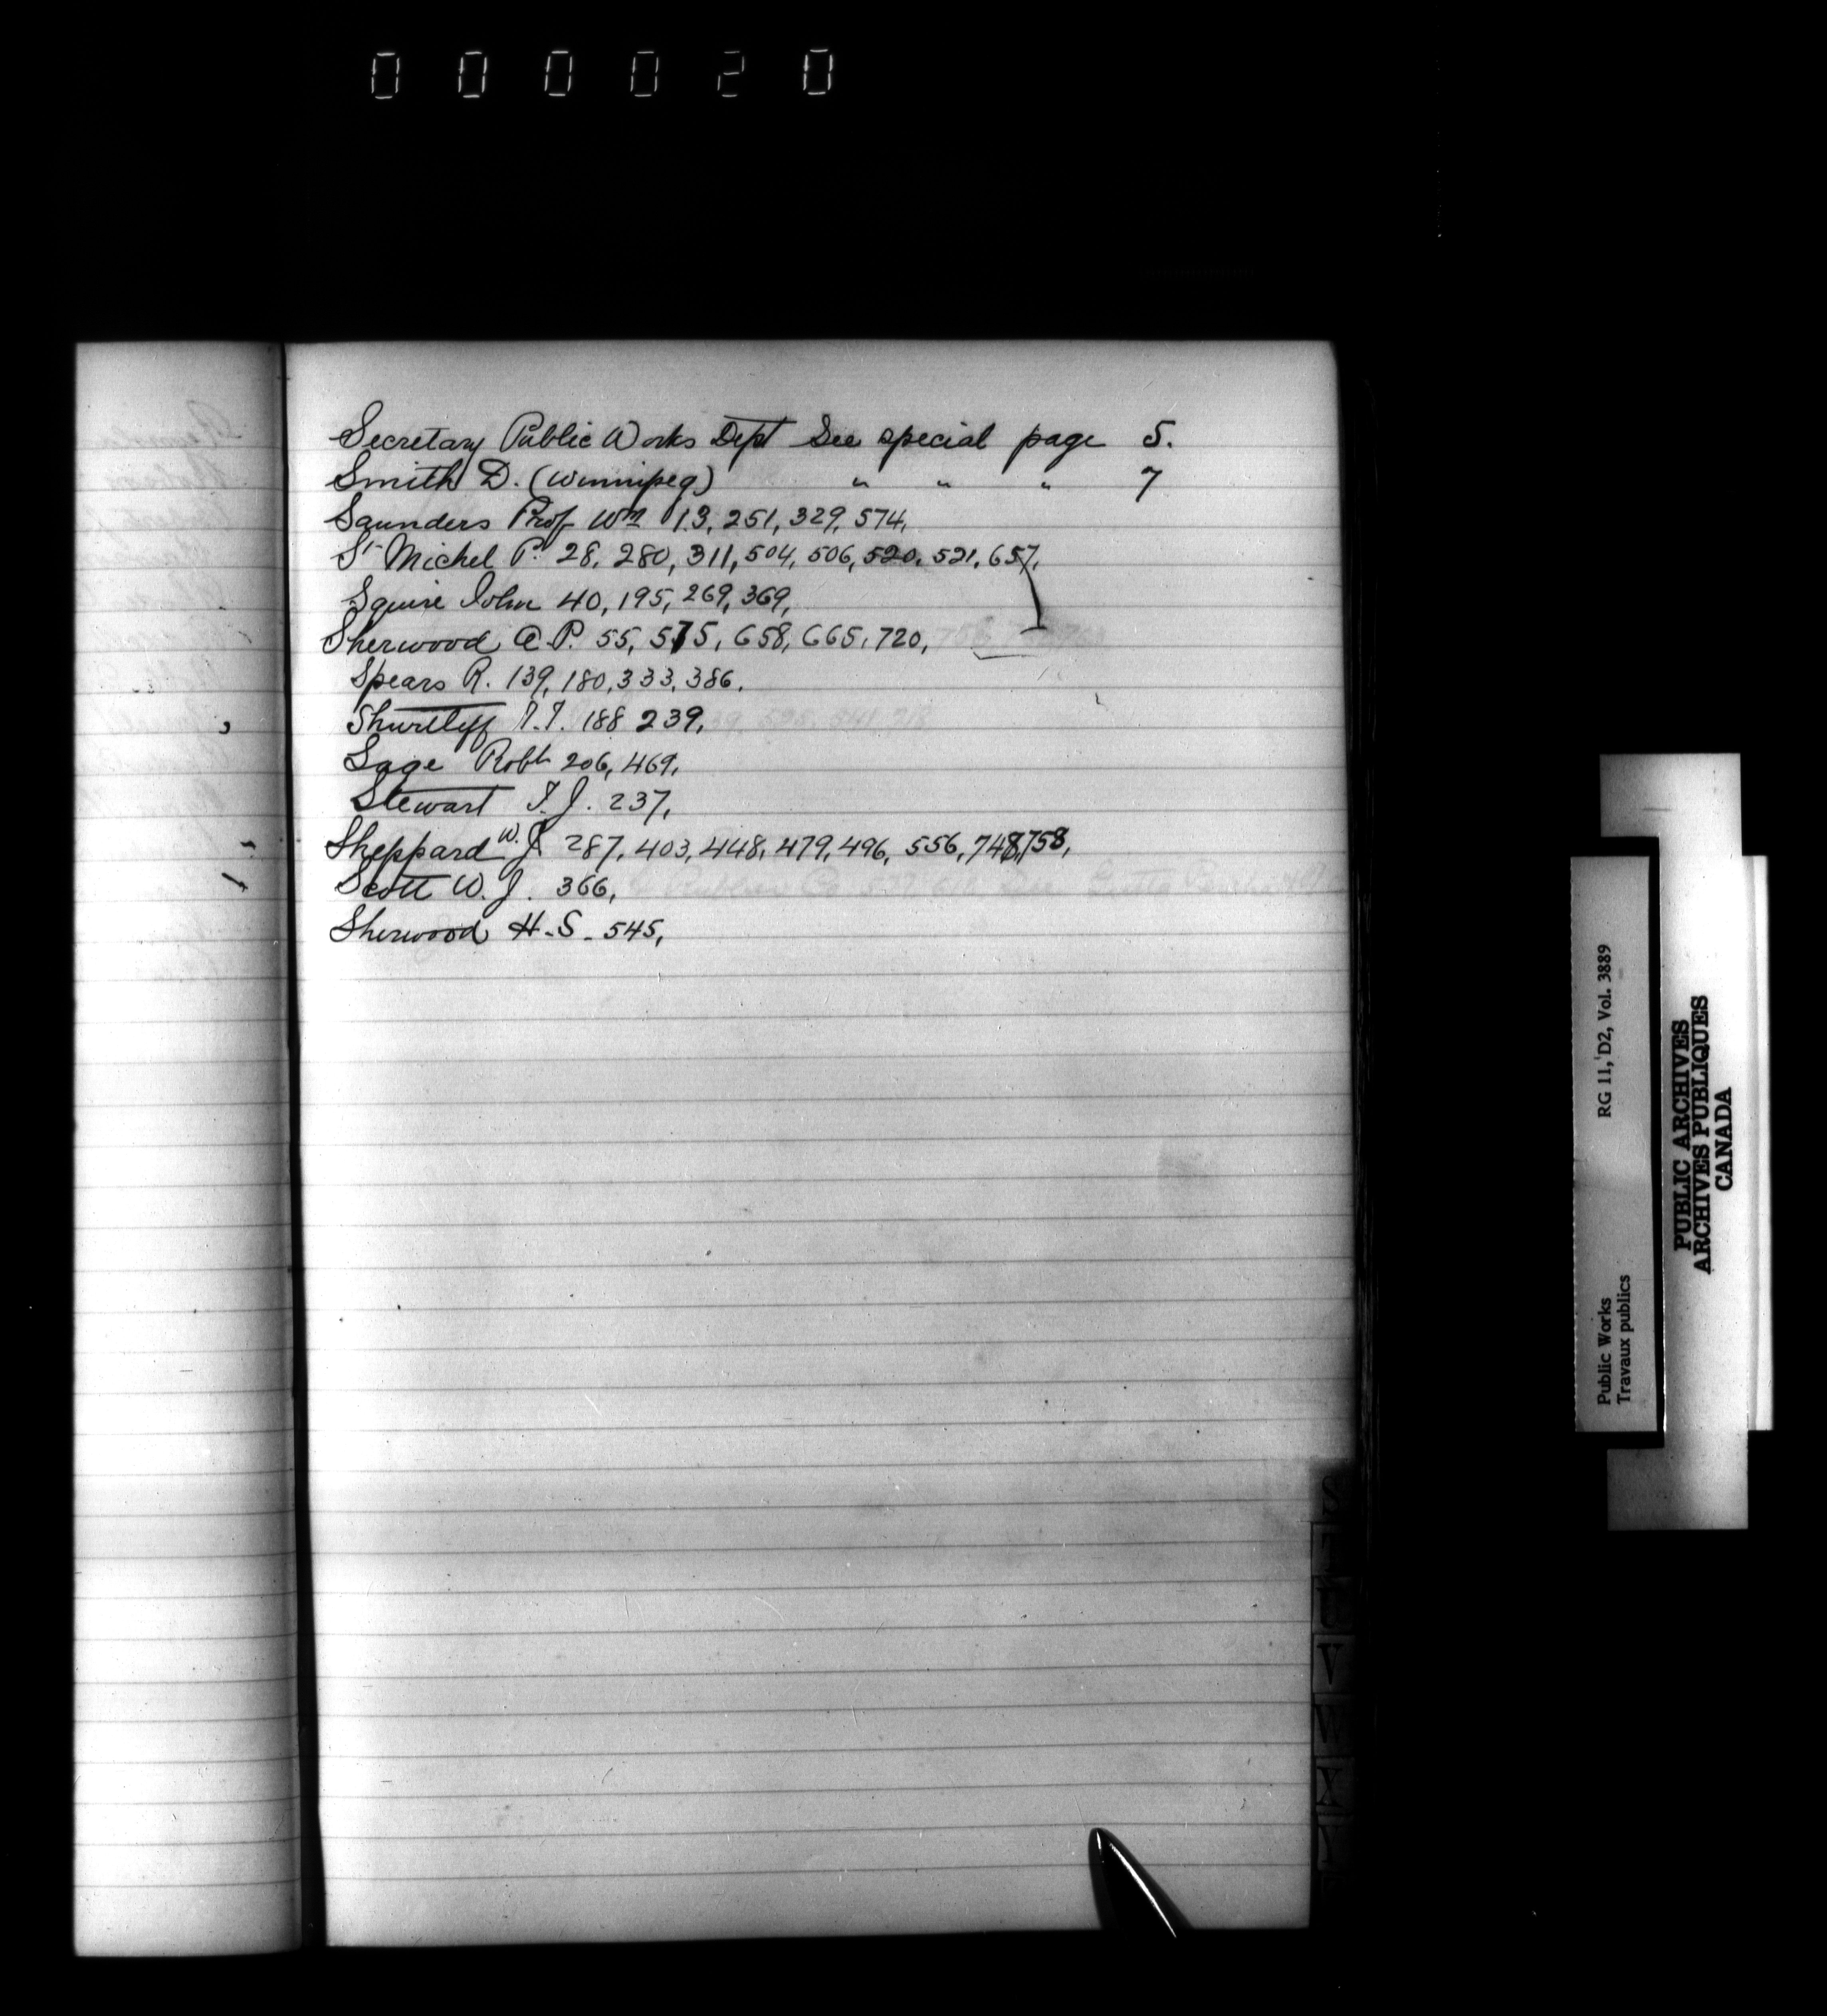 000020
Secretary Public Works Dept See special page 5.
Smith D. (Winnipeg) " " " 7
Saunders Prof Wm 13, 251, 329, 574,
St Michel P. 28, 280, 311, 504, 506, 520, 521, 657,
Squire John 40, 195, 269, 369,
Sherwood A.P. 55, 575, 658, 665, 720,
Spears R. 139, 180, 333, 386,
Shurtleff 188 239,
Sage Robt 206, 469,
Stewart T. J. 237,
Sheppard W. J. 287, 403, 448, 479, 496, 556, 748, 758,
Scott W. J. 366,
Sherwood H.S. 545,
S
T
U
V
W
X
Public Works
Travaux publics
RG 11, D2, Vol. 3889
PUBLIC ARCHIVES
ARCHIVES PUBLIQUES
CANADA